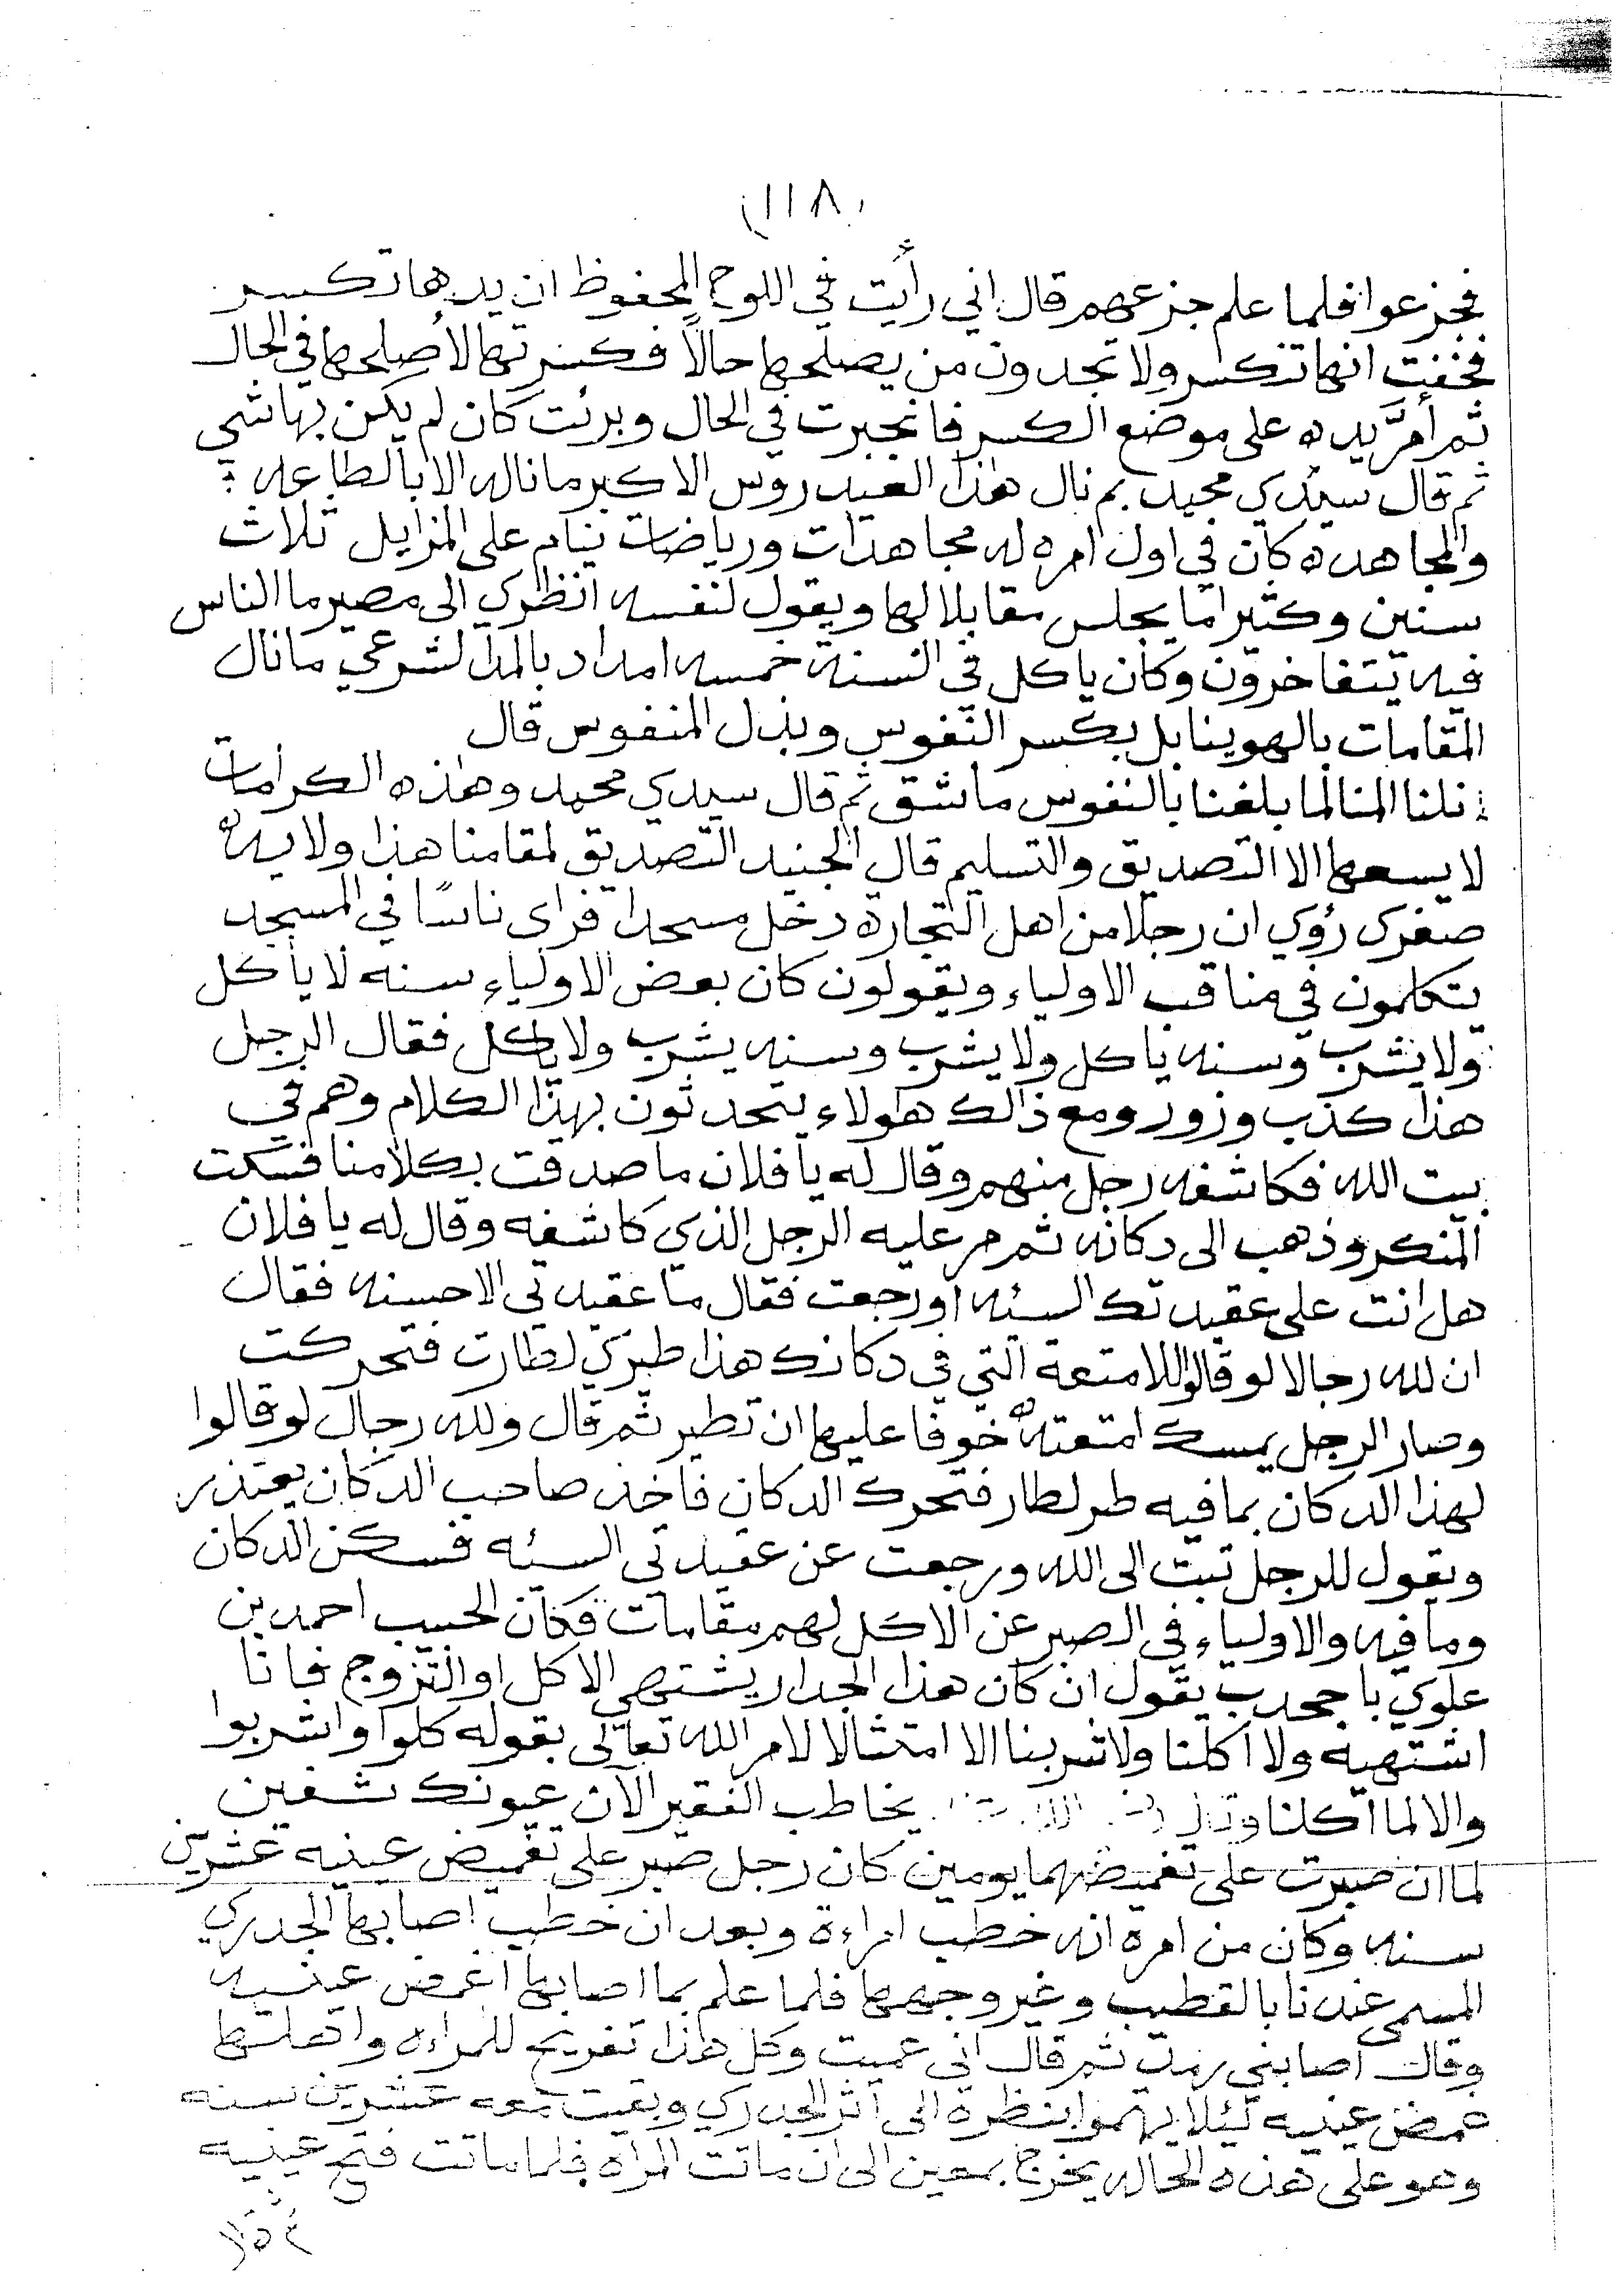 (١١٨)
فجزعوا فلما علم جزعهم قال اني رأيت في اللوح المحفوظ ان يدها تكسر
فخفت انها تنكسر ولا تجدون من يصلحها حالاً فكسرتها لأصلحها في الحال
ثم أمرَّ يده على موضع الكسر فانجبرت في الحال وبرئت كان لم يكن بها شي
ثم قال سيدي محمد بم نال هذا العيدروس الاكبر ما ناله الا بالطاعه
والمجاهده كان في اول امره له مجاهدات ورياضات ينام على المزابل ثلاث
سنين وكثيرا ما يجلس مقابلا لها ويقول لنفسه انظري الى مصير ما الناس
فيه يتفاخرون وكان ياكل في السنة خمسه امداد بالمد الشرعي ما نال
المقامات بالهوينا بل بكسر النفوس وبذل المنفوس قال
نلنا المنا لما بلغنا بالنفوس ما شق ثم قال سيدي محمد وهذه الكرامات
لا يسعها الا التصديق والتسليم قال الجنيد التصديق لمقامنا هذا ولايه
صغرى رؤي ان رجلا من اهل التجارة دخل مسجدا فراى ناسًا في المسجد
يتكلمون في مناقب الاولياء ويقولون كان بعض الاولياء سنه لا يأكل
ولا يشرب وسنه ياكل ولا يشرب وسنه يشرب ولا ياكل فقال الرجل
هذا كذب وزور ومع ذالك هاولاء يتحدثون بهذا الكلام وهم في
بيت الله فكاشفه رجل منهم وقال له يا فلان ما صدقت بكلامنا فسكت
المنكر وذهب الى دكانه ثم مر عليه الرجل الذي كاشفه وقال له يا فلان
هل انت على عقيدتك السئه او رجعت فقال ما عقيدتي الا حسنه فقال
ان لله رجالا لو قالوا للامتعة التي في دكانك هذا طيري لطارت فتحركت
وصار الرجل يمسك امتعته خوفا عليها ان تطير ثم قال ولله رجال لو قالوا
لهذا الدكان بما فيه طر لطار فتحرك الدكان فاخذ صاحب الدكان يعتذر
ويقول للرجل تبت الى الله ورجعت عن عقيدتي السئه فسكن الدكان
وما فيه والاولياء في الصبر عن الاكل لهم مقامات فكان الحبيب احمد بن
علوي باجحدب يقول ان كان هذا الجدار يشتهي الاكل او التزوج فانا
اشتهيه ولا اكلنا ولا شربنا الا امتثالا لامر الله تعالى بقوله كلوا واشربوا
والا لما اكلنا وقال يخاطب الفقير الآن عيونك
لما ان صبرت على تغميضهما يومين كان رجل صبر على تغميض عينيه عشرين
سنه وكان من امره انه خطب امراءة وبعد ان خطب اصابها الجدري
المسمى عندنا بالقطيب وغير وجهها فلما علم بما اصابها اغمض عينيه
وقال اصابني رمد ثم قال اني عميت وكل هذا تفريح للمراءه واهلها
غمض عينيه لئلا يهموا بنظره الى اثر الجدري وبقيت معه عشرين سنه
وهو على هذه الحاله يخرج بمعين الى ان ماتت المراه فلما ماتت فتح عينيه